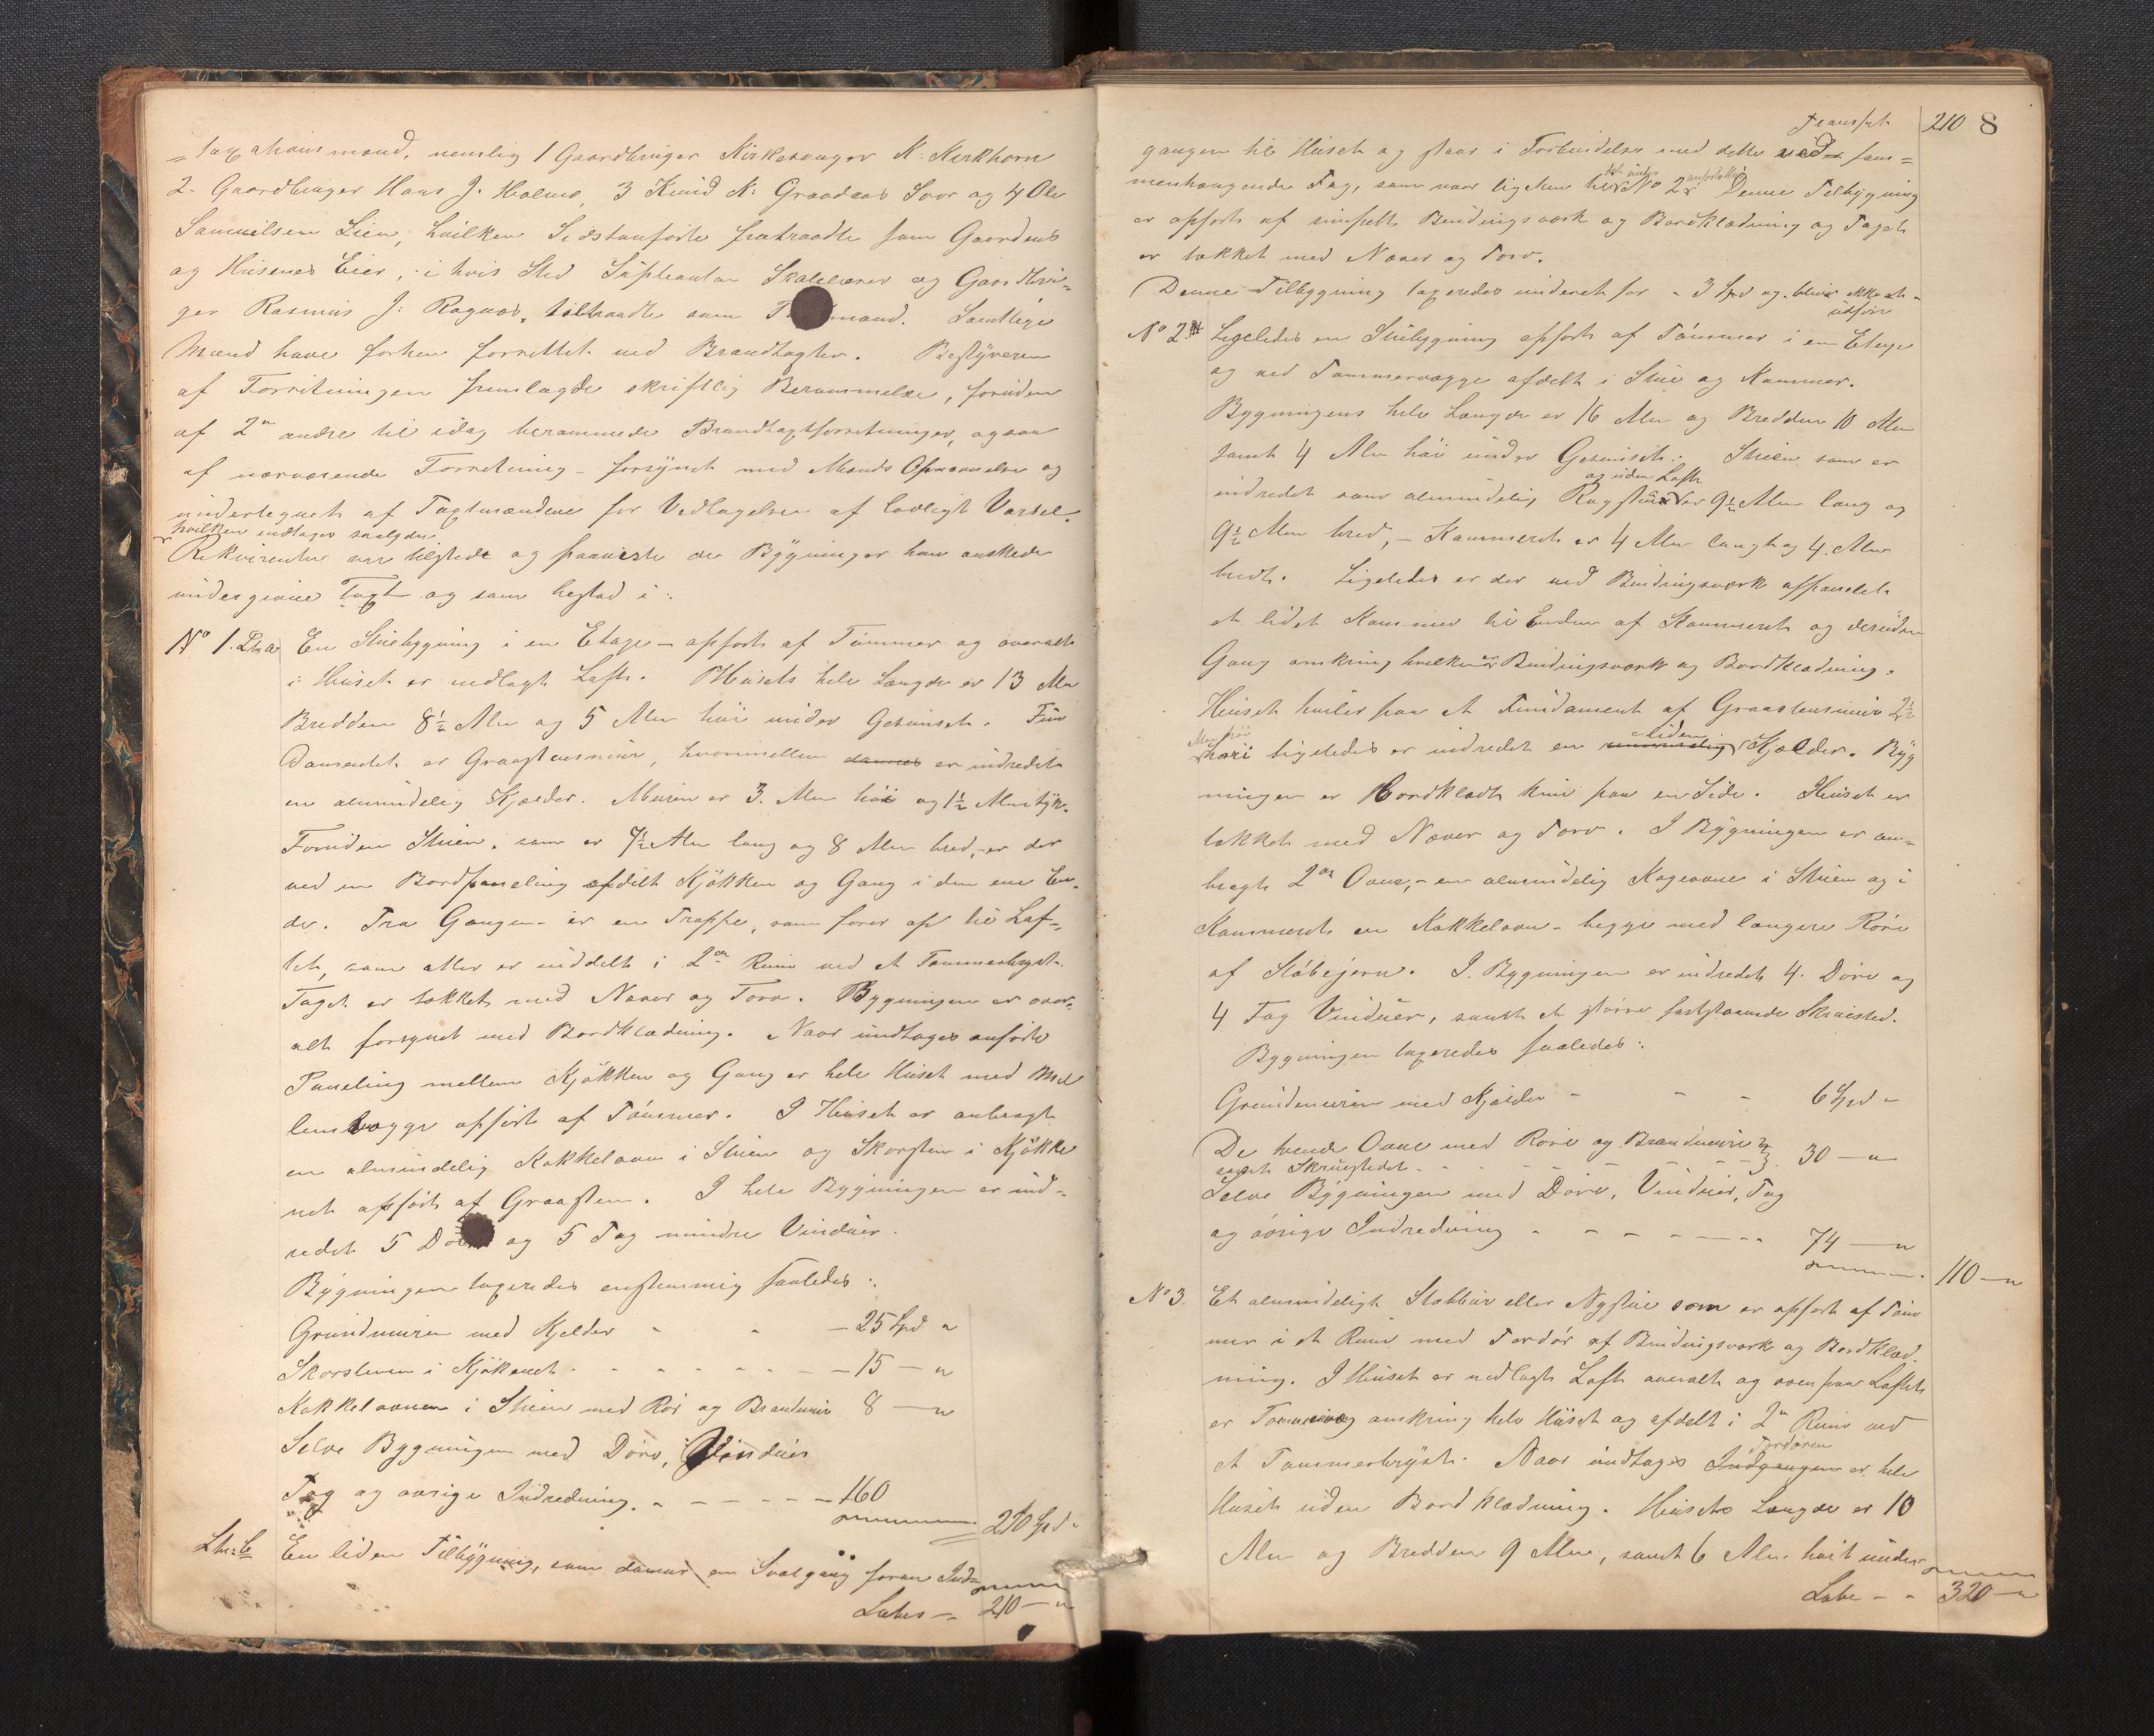 = taxationsmænd, nemlig 1 Gaardbruger Kirkesanger K. Kirkhorn
2. Gaardbruger Hans J. Holmo, 3 Knud K: Graadaas Soor og 4 Ole
Samuelsen Lien, hvilken Sidstanførte fratraadte som Gaardens
og Husenes Eier, i hvis Sted Supleanten Skolelærer og Gaardbru-
ger Rasmus J: Ragnæs, tiltraadte som mand. Samtlige
Mænd have forhen forrettet ved Brandtaxter. Bestyreren
af Forretningen fremlagde skriftlig Berammelse, foruden
af 2de andre til idag berammede Brandtaxtforretninger, ogsaa
af nærværende Forretning - forsynet med Mænds Opnævnelse og
undertegnet af Taxtmændene for Vedtagelsen af lovligt Varsel.
hvilken indtages saalydende
Rekvirenten var tilstede og paaviste de Bygninger han ønskede
undergivne Taxt og som bestod i:
No 1. Litr a En Stuebygning i en Etage - opført af Tømmer og overalt
i Huset er nedlagt Loft. Husets hele Længde er 13 Aln
Bredden 8½ Aln og 5 Aln høi under Gesimset. Fun
damentet er Graastensmur, hvorimellem dannes er indredet
en almindelig Kjælder. Muren er 3. Aln høi og 1½ Aln tyk.
Foruden Stuen, som er 7½ Aln lang og 8 Aln bred, - er der
ved en Bordpaneling afdelt Kjøkken og Gang i den ene En-
de. Fra Gangen er en Trappe, som fører op til Lof-
tet, som atter er inddelt i 2de Rum ved et Tømmerbryst.
Taget er tækket med Næver og Torv. Bygningen er over-
alt forsynet med Bordklædning. Naar undtages anførte
Paneling mellem Kjøkken og Gang er hele Huset med Mel
lemvægge opført af Tømmer. I Huset er anbragt
en almindelig Kakkelovn i Stuen og Skorsten i Kjøkke
net opført af Graasten. I hele Bygningen er ind-
redet 5 Døre og 5 Fag mindre Vinduer.
Bygningen taxeredes enstemmig saaledes:
Grundmuren med Kjelder - - - 25 Spd "
Skorstenen i Kjøkenet - - - - - - - 15 - "
Kakkelovnen i Stuen med Rør og Brandmur 8 - "
Selve Bygningen med Døre, Vinduer
Tag og øvrige Indredning. - - - - - - 160
210 Spd "
Litr: b En liden Tilbygning, som danner en Svalgang foran Ind-
Lates - 210 - "
Transpt 210 8
gangen til Huset og staar i Forbindelse med dette ved sam=
det under anførte
menhængende Tag, som naar ligeken til No 2. Denne Tilbygning
er opført af simpelt Bindingsværk og Bordklædning og Taget
er tækket med Næver og Torv.
Denne Tilbygning taxeredes underet for - 3 Spd og bliver ikke at
udføre
No 2. Ligeledes en Stuebygning opført af Tømmer i en Etage
og ved Tømmervægge afdelt i Stue og Kammer.
Bygningens hele Længde er 16 Aln og Bredden 10 Aln
samt 4 Aln høi under Gesimset. Stuen som er
og uden Loft
indredet som almindelig Røgstue er 9½ Aln lang og
9½ Aln bred, - Kammeret er 4 Aln langt og 4. Aln
bredt. Ligeledes er der ved Bindingsværk afpanelet
et lidet Kammer til Enden af Kammeret og desuden
Gang omkring hvilken er Bindingsværk og Bordklædning.
Huset hviler paa et Fundament af Graastensmur 2½
Aln høi liden
hvori ligeledes er indredet en almindelig Kjælder. Byg
ningen er Bordklædt kun paa en Side. Huset er
tækket med Næver og Torv. I Bygningen er an=
bragt 2de Ovne, - en almindelig Kogeovn i Stuen og i
Kammeret en Kakkelovn - begge med længere Røre
af Støbejern. I Bygningen er indredet 4. Døre og
4 Fag Vinduer, samt et større faststaaende Skruested.
Bygningen taxeredes saaledes:
Grundmuren med Kjælder - - - 6 Spd "
De tvende Ovne med Røre og Brandmure
samt Skruestedet - - - - - - - 30 - "
Selve Bygningen med Døre, Vinduer, Tag
og øvrige Indredning - - - - - - - 74 - "
110 - "
No 3. Et almindeligt Stabbur eller Nystue som er opført af Tøm
mer i et Rum med Fordør af Bindingsværk og Bordklæd
ning. I Huset er nedlagt Loft overalt og oven paa Loftet
er Tømmervæg omkring hele Huset og afdelt i 2de Rum ved
Fordøren
et Tømmerbryst. Naar undtages Indgangen er hele
Huset uden Bordklædning. Husets Længde er 10
Aln og Bredden 9 Aln, samt 6 Aln høit under
Late - - 320 - "